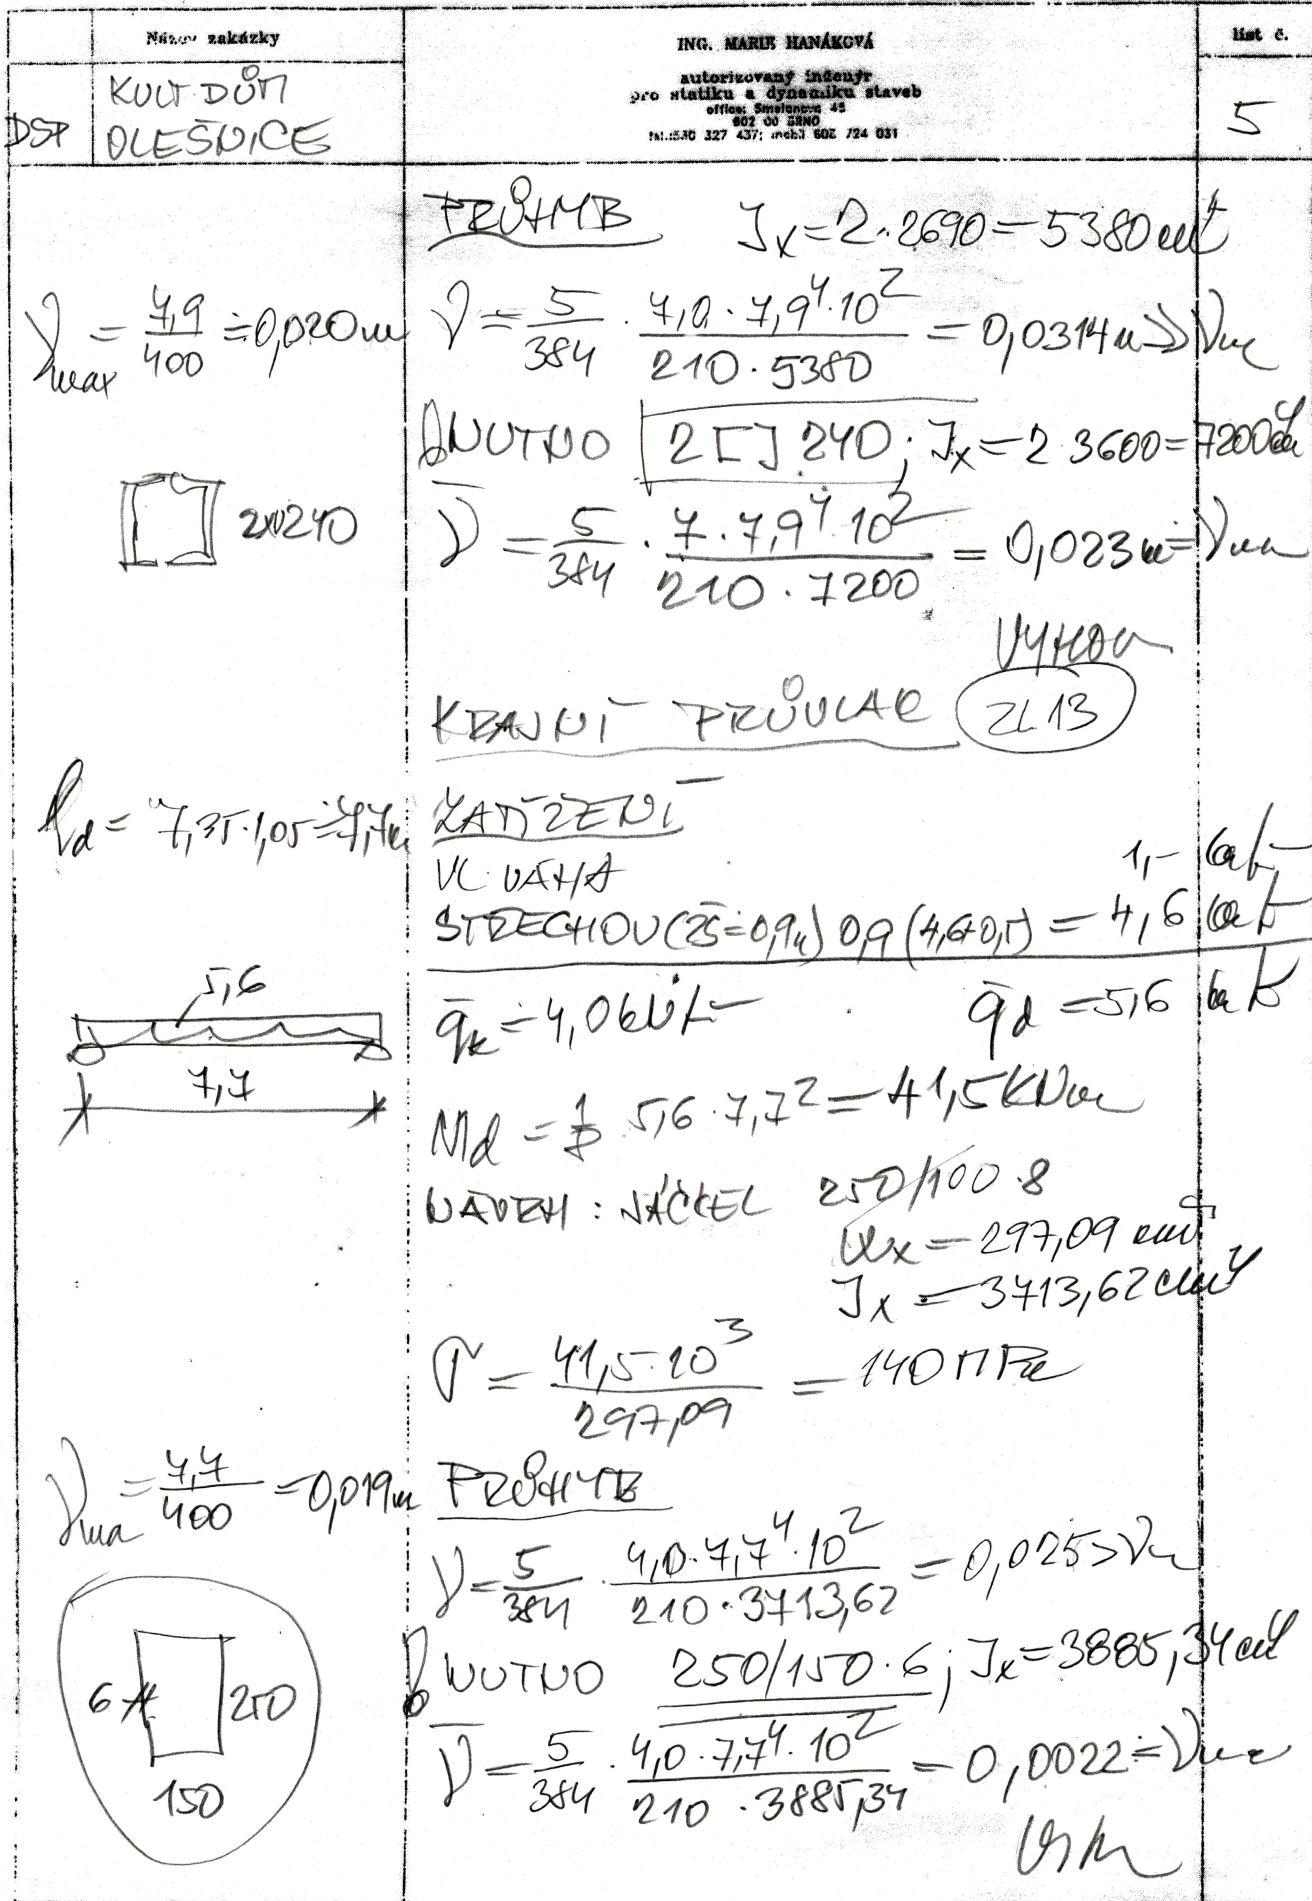 Název zakázky
ING. MARIE HANÁKOVÁ
list č.
autorizovaný inženýr
pro statiku a dynamiku staveb
office: Smetanova 45
602 00 BRNO
tel.:530 327 437; mobil 602 724 031
DSP
KULT DŮM
OLEŠNICE
5
PRŮHYB Jx = 2·2690 = 5380 cm⁴
νmax = 7,9/400 ≐ 0,020 m
ν = 5/384 · 7,0·7,9⁴·10²/210·5380 = 0,0314 m > νm
NUTNO 2[] 240; Jx = 2·3600 = 7200 cm⁴
2xU240
ν = 5/384 · 7·7,9⁴·10²/210·7200 = 0,023 m ≐ νm
VYHOV
KRAJNÍ PRŮVLAK ZL13
ld = 7,35·1,05 ≐ 7,7 m
ZATÍŽENÍ
VL. VÁHA 1,-
STŘECHOU (ZŠ=0,9m) 0,9 (4,6+0,5) = 4,6
5,6
7,7
qk = 4,0 kN/m qd = 5,6
Md = 1/8 5,6·7,7² = 41,5 KNm
NÁVRH: JÄCKEL 250/100·8
Wx = 297,09 cm³
Jx = 3713,62 cm⁴
σ = 41,5·10³/297,09 = 140 MPa
νma = 7,7/400 = 0,019 m
PRŮHYB
ν = 5/384 · 4,0·7,7⁴·10²/210·3713,62 = 0,025 > νm
NUTNO 250/150·6; Jx = 3885,34 cm⁴
6
250
150
ν = 5/384 · 4,0·7,7⁴·10²/210·3885,34 = 0,0022 ≐ νm